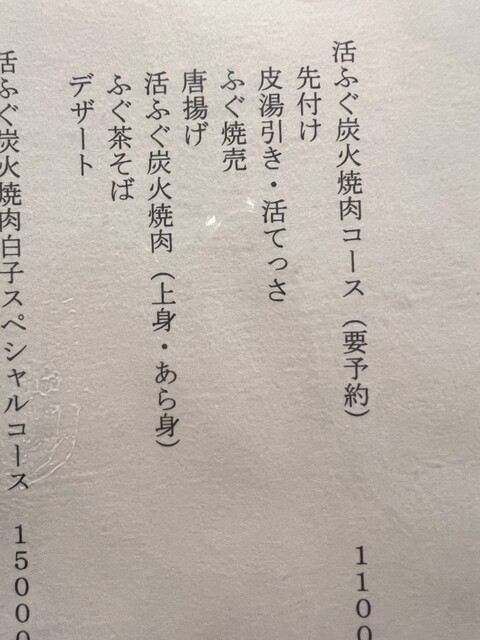 活ふぐ炭火焼肉コース（要予約） 1100
先付け
皮湯引き・活てっさ
ふぐ焼売
唐揚げ
活ふぐ炭火焼肉（上身・あら身）
ふぐ茶そば
デザート
活ふぐ炭火焼肉白子スペシャルコース 15000